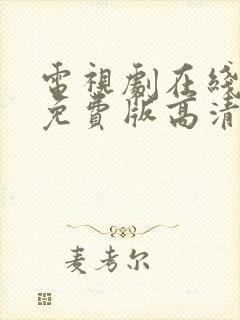 電視劇在綫
免費版高清
麦考尔